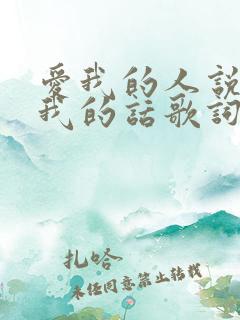 愛我的人説
我的話歌詞
扎哈
未经同意禁止转载